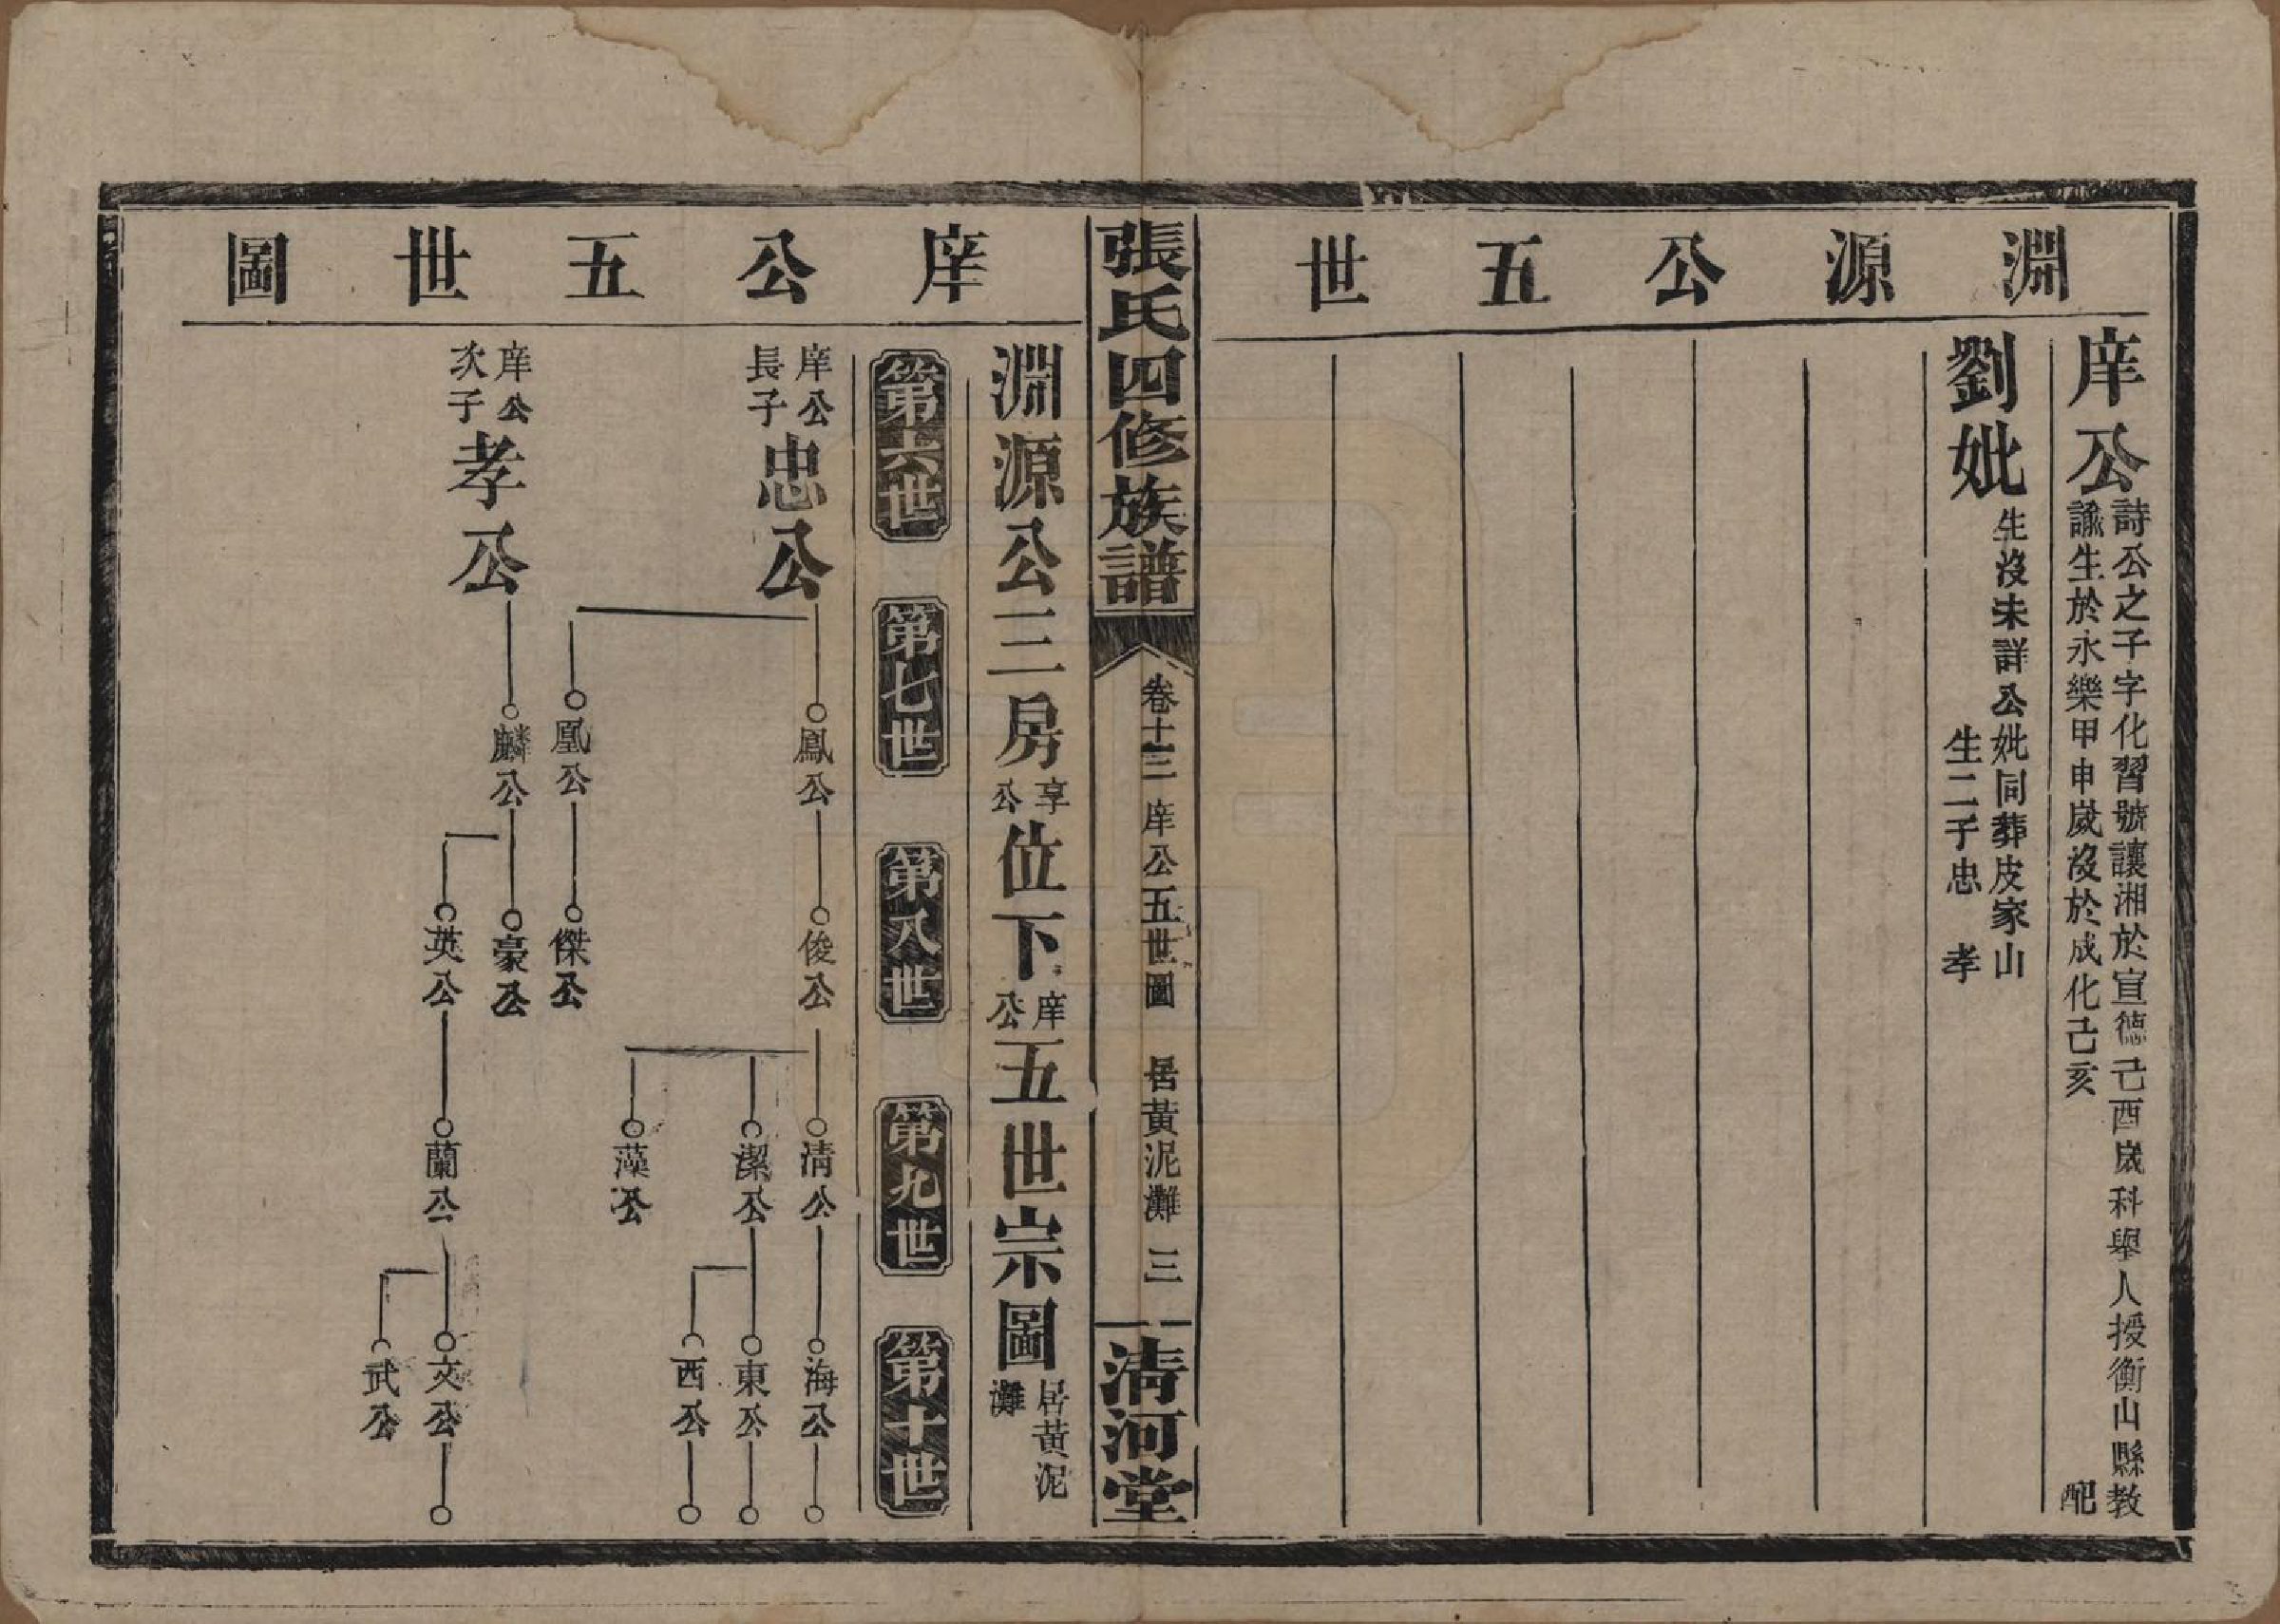 淵源公五世
庠公
詩公之子字化習號讓湘於宣德己酉歲科舉人授衡山縣教
諭生於永樂甲申歲沒於成化己亥 配
劉妣
生沒未詳公妣同葬皮家山
生二子忠 孝
張氏四修族譜
卷十三 庠公五世圖 居黃泥灘 三
清河堂
庠公五世圖
淵源公三房享公位下庠公五世宗圖居黃泥灘
第六世
第七世
第八世
第九世
第十世
庠公長子忠公
鳳公
俊公
清公
海公
潔公
東公
西公
藻公
凰公
傑公
庠公次子孝公
麟公
豪公
英公
蘭公
文公
武公